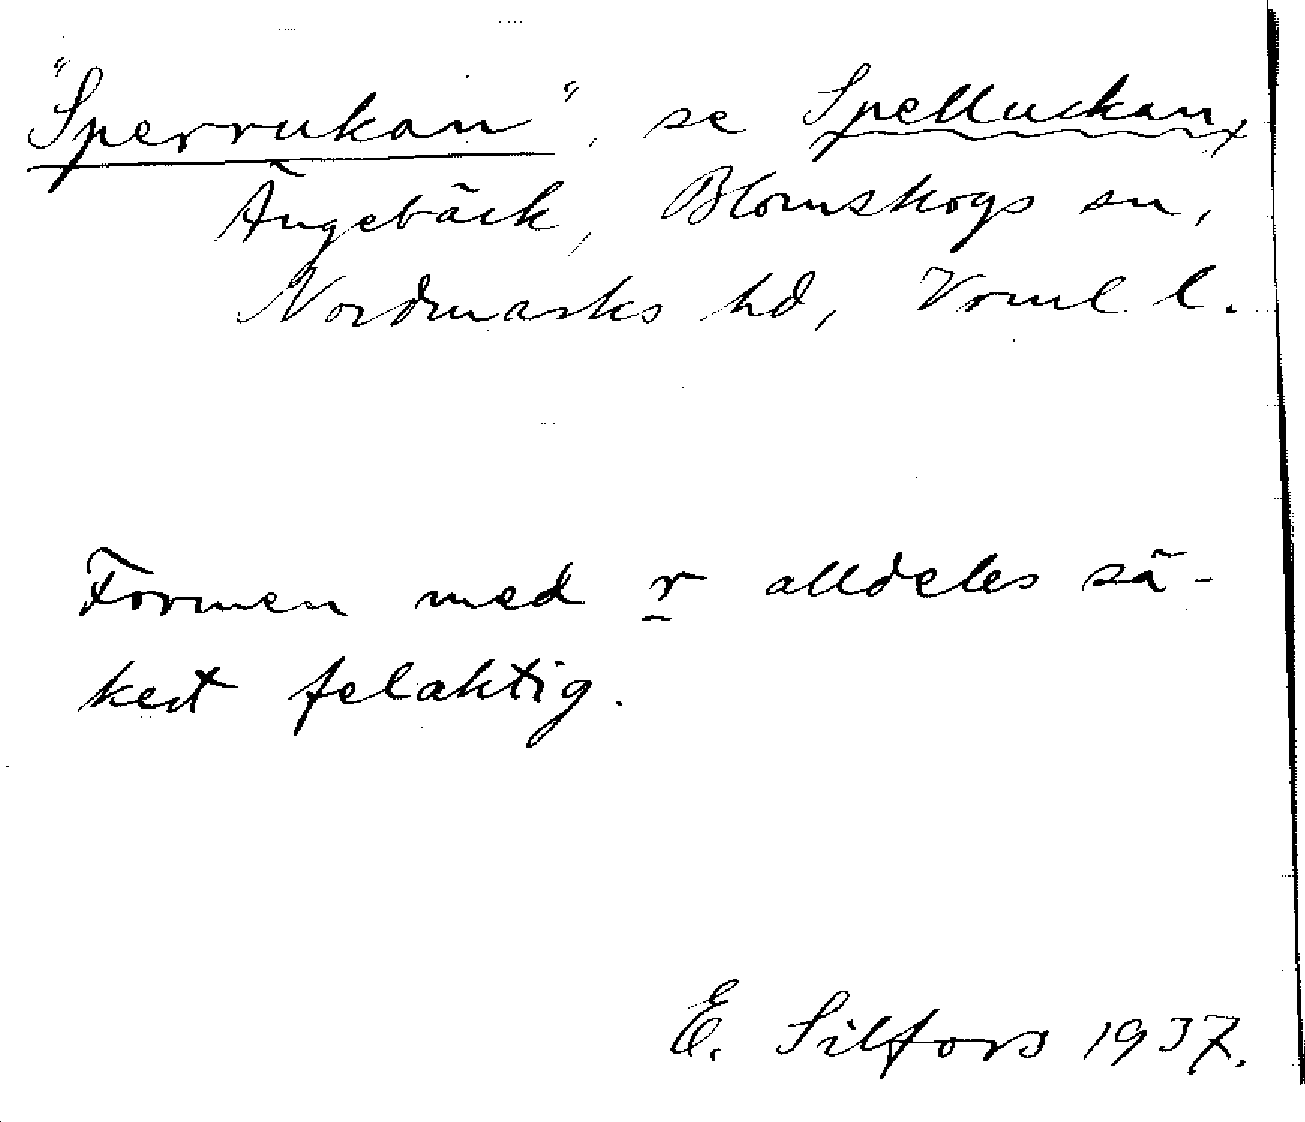 "Sperrukan", se Spelluckan,
Ängebäck, Blomskogs sn,
Nordmarks hd, Vrml l.
Formen med r alldeles sä-
kert felaktig.
E. Silfors 1937.